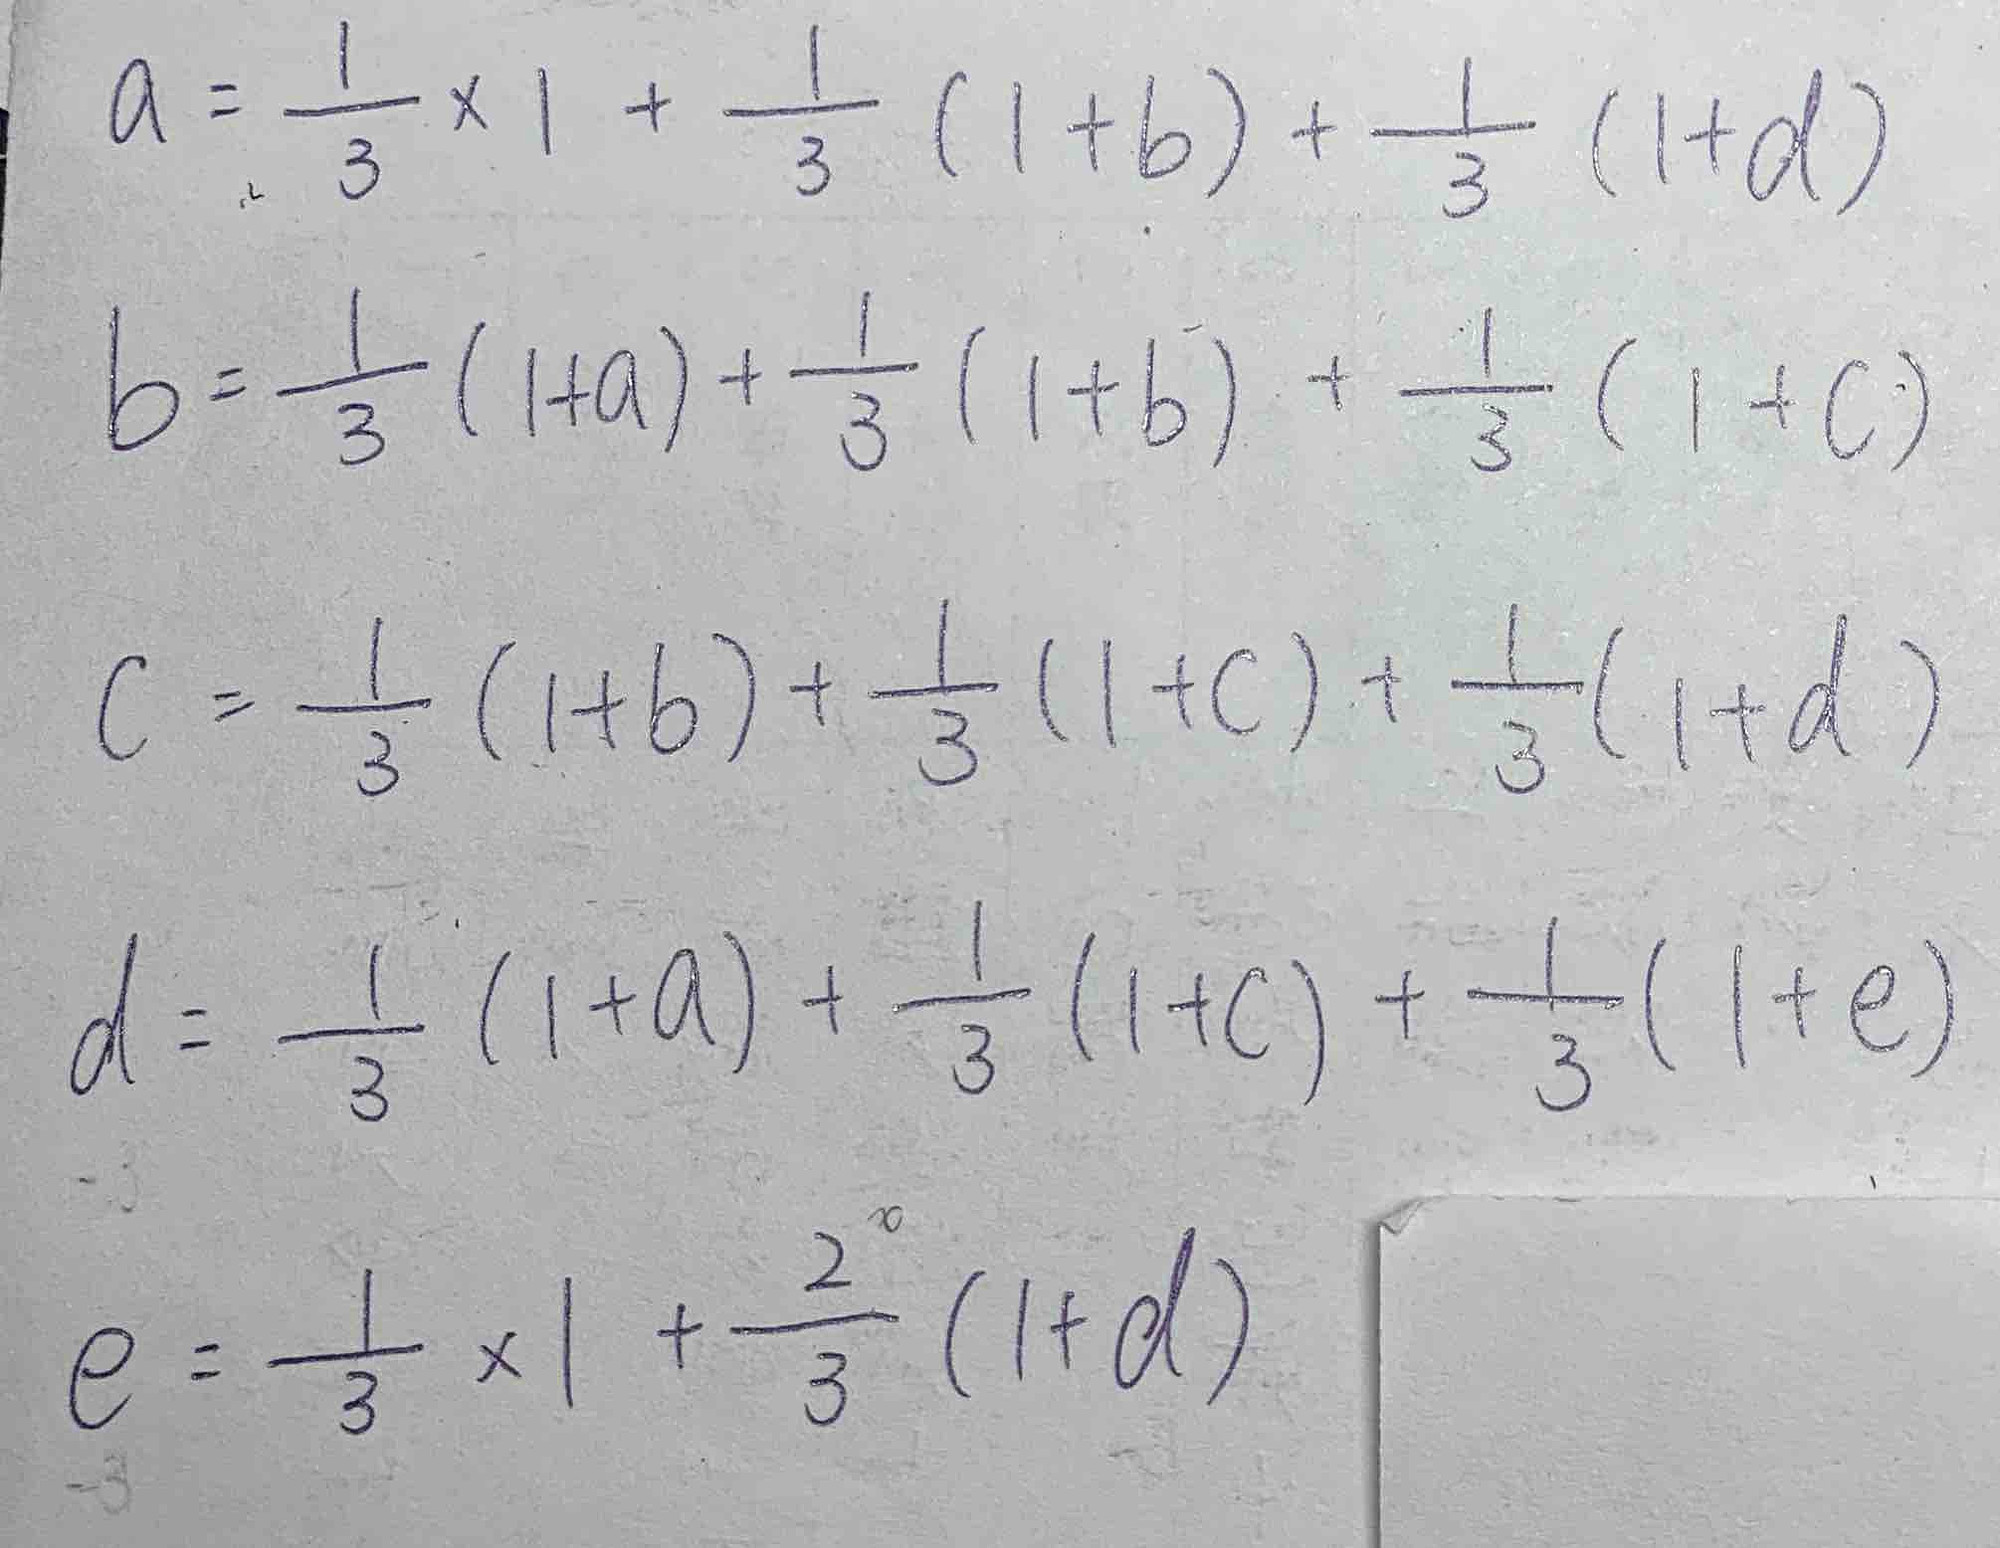 a = 1/3 × 1 + 1/3 (1+b) + 1/3 (1+d)
b = 1/3 (1+a) + 1/3 (1+b) + 1/3 (1+c)
c = 1/3 (1+b) + 1/3 (1+c) + 1/3 (1+d)
d = 1/3 (1+a) + 1/3 (1+c) + 1/3 (1+e)
e = 1/3 × 1 + 2/3 (1+d)